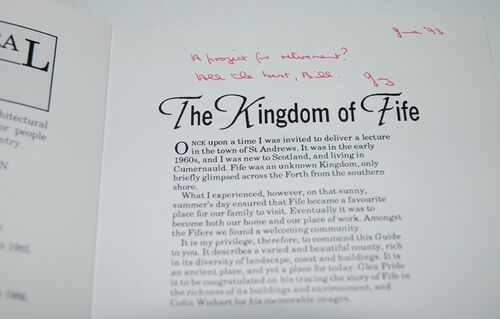 RAL
chitectural
or people
ntry.
ON
1985.
1986.
June '93
A project for retirement?
All the best, Bill.
The Kingdom of Fife
ONCE upon a time I was invited to deliver a lecture
in the town of St Andrews. It was in the early
1960s, and I was new to Scotland, and living in
Cumernauld. Fife was an unknown Kingdom, only
briefly glimpsed across the Forth from the southern
shore.
What I experienced, however, on that sunny,
summer's day ensured that Fife became a favourite
place for our family to visit. Eventually it was to
become both our home and our place of work. Amongst
the Fifers we found a welcoming community.
It is my privilege, therefore, to commend this Guide
to you. It describes a varied and beautiful county, rich
in its diversity of landscape, coast and buildings. It is
an ancient place, and yet a place for today. Glen Pride
is to be congratulated on his tracing the story of Fife in
the richness of its buildings and environment, and
Colin Wishart for his memorable images.